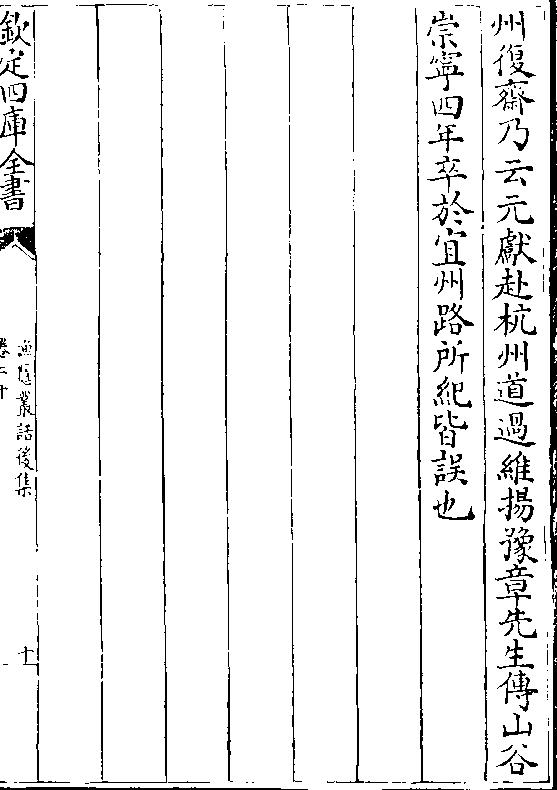 州復齋乃云元獻赴杭州道過維揚豫章先生傳山谷
崇寧四年卒於宜州路所紀皆誤也
欽定四庫全書
漁隱叢話後集
卷二十
十